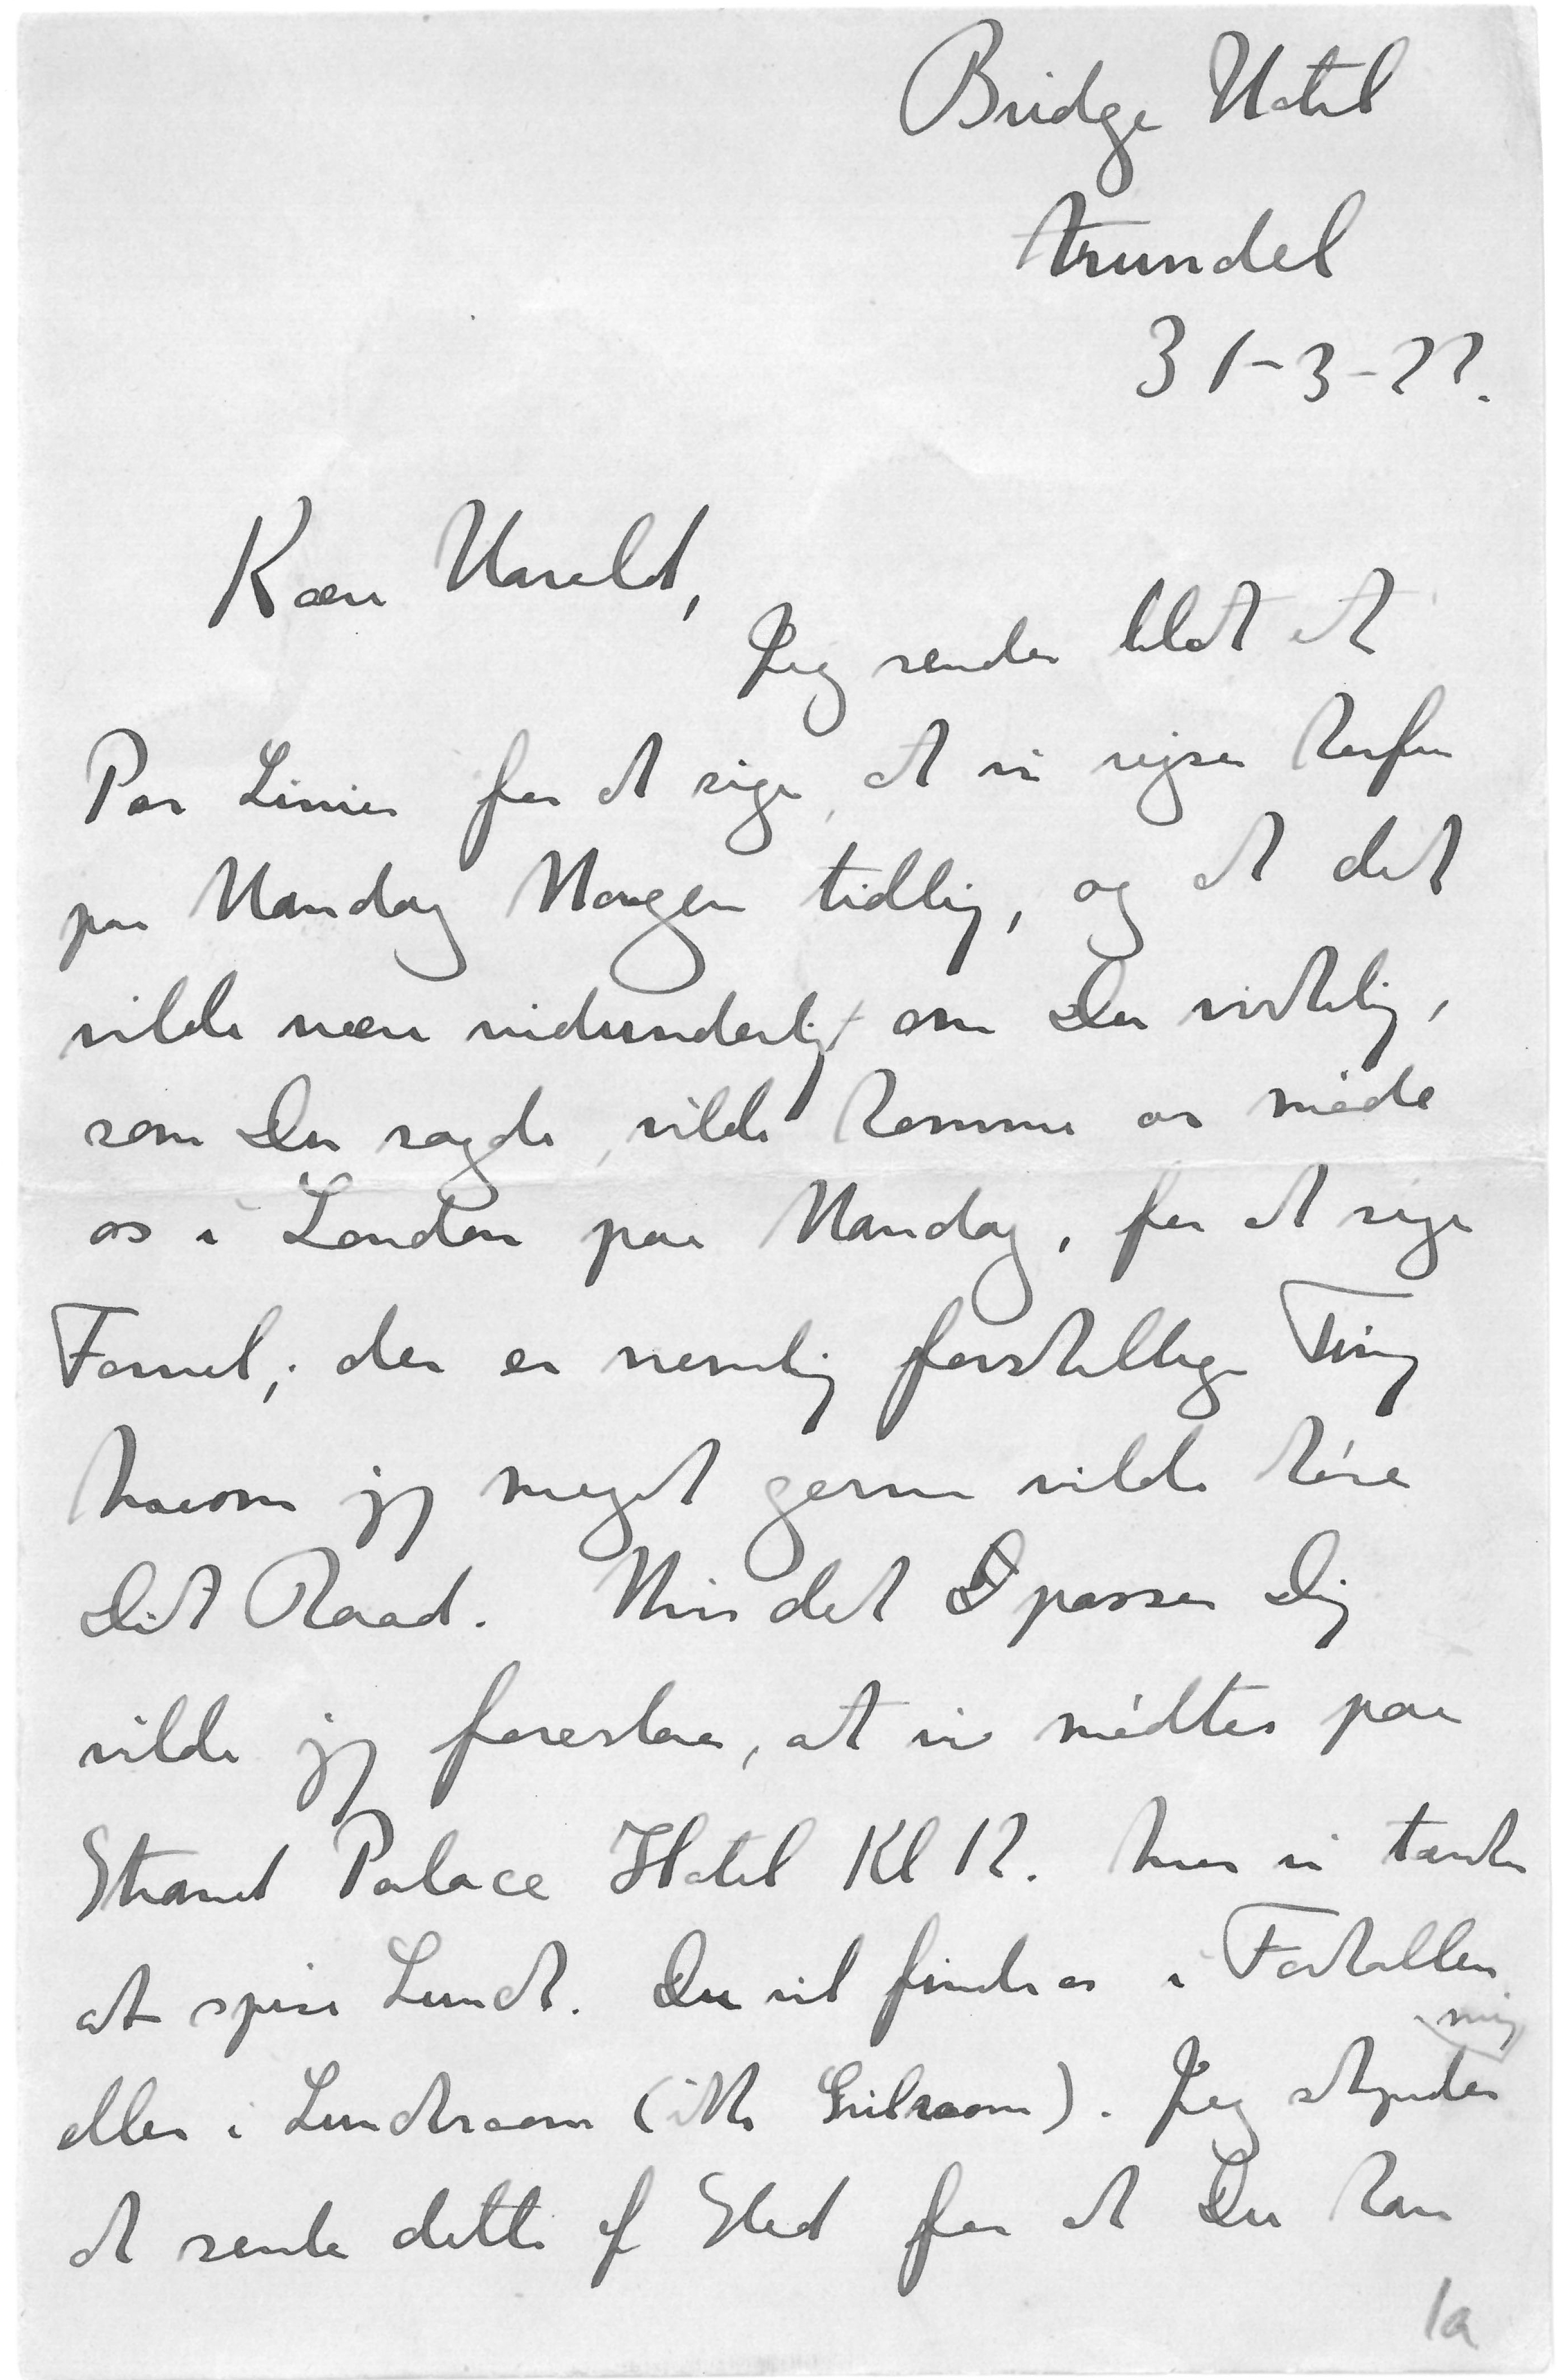 Bridge Hotel
Arundel
31-3-22.
Kære Harald,
Jeg sender blot et
Par Linier for at sige, at vi rejser herfra
paa Mandag Morgen tidlig, og at det
vilde være vidunderligt om Du virkelig,
som Du sagde, vilde komme og møde
os i London paa Mandag, for at sige
Farvel; der er nemlig forskellige Ting
hvorom jeg meget gerne vilde høre
Dit Raad. Hvis det passer Dig
vilde jeg foreslaa, at vi mødtes paa
Strand Palace Hotel Kl 12. hvor vi tænker
at spise Lunch. Du vil finde os i Forhallen
eller i Lunchroom (ikke Grilroom). Jeg skynder mig
at sende dette af Sted for at Du kan
1a